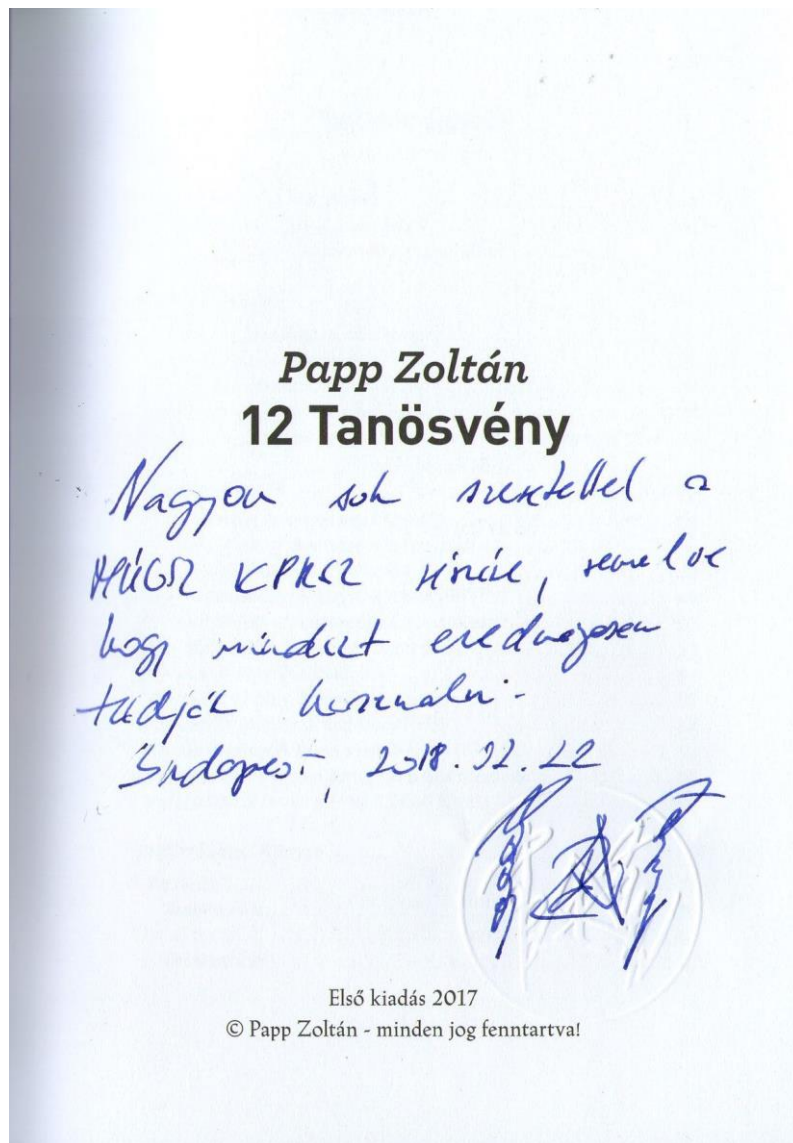 Papp Zoltán
12 Tanösvény
Nagyon sok szeretettel a
MÚOSZ részére, remélve
hogy mindezt eredményesen
tudják használni.
Budapest, 2018. 02. 22
Első kiadás 2017
© Papp Zoltán - minden jog fenntartva!